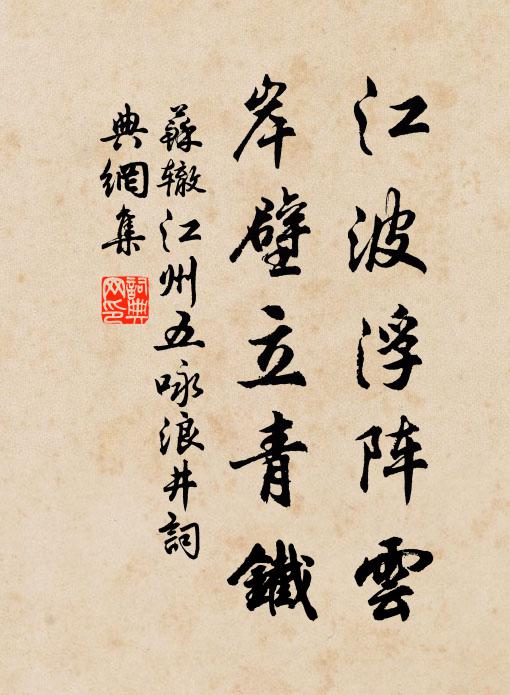 江波浮阵雲
岸壁立青鐵
蘇辙江州五咏浪井詞
典網集
詞典
网印